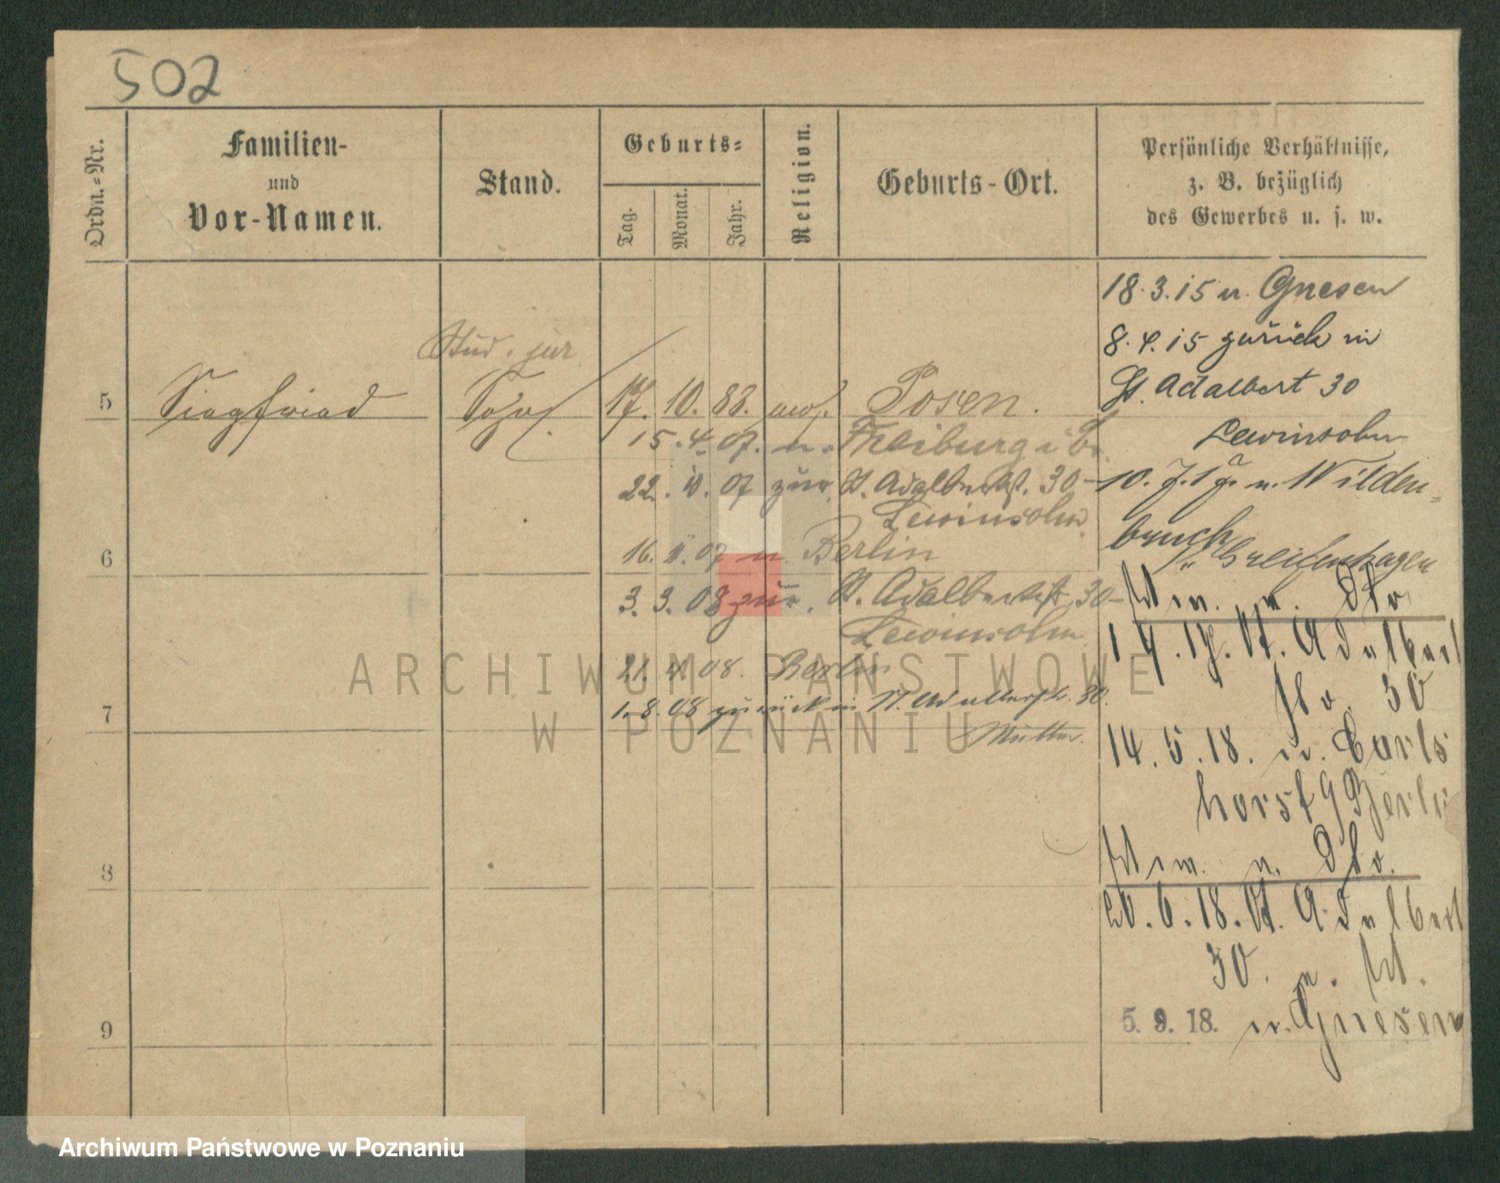 502
Ordn.-Nr.
Familien-
und
Vor-Namen.
Stand.
Geburts-
Tag.
Monat.
Jahr.
Religion.
Geburts-Ort.
Persönliche Verhältnisse,
z. B. bezüglich
des Gewerbes u. s. w.
5
Siegfried
Stud. jur.
Sohn
17. 10. 88. mos. Posen.
15. 4. 07. n. Freiburg i Br.
22. 07 zur. St. Adalbertst. 30-
Lewinsohn
6
16. 07 n. Berlin
3. 3. 08 zur. St. Adalbertst. 30-
Lewinsohn
21. 4. 08. Berlin
7
1. 8. 08 zurück in St. Adalbertstr. 30.
Mutter.
8
9
18.3.15 n. Gnesen
8.4.15 zurück in
St. Adalbert 30
Lewinsohn
10. n. Wilden-
bruch
Greifenhagen
St. Adalbert
30
14. 5. 18. n. Carls
horst Berlin
6. 18. St. Adalbert
30.
5. 9. 18. n. Gnesen
ARCHIWUM PAŃSTWOWE
W POZNANIU
Archiwum Państwowe w Poznaniu